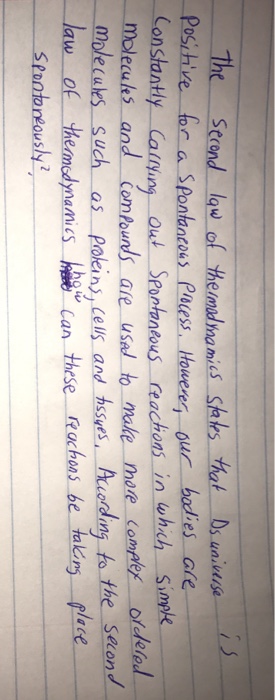 The second law of thermodynamics states that Ds universe is
positive for a spontaneous process. However, our bodies are
constantly carrying out spontaneous reactions in which simple
molecules and compounds are used to make more complex ordered
molecules such as proteins, cells and tissues. According to the second
law of thermodynamics how can these reactions be taking place
spontaneously?